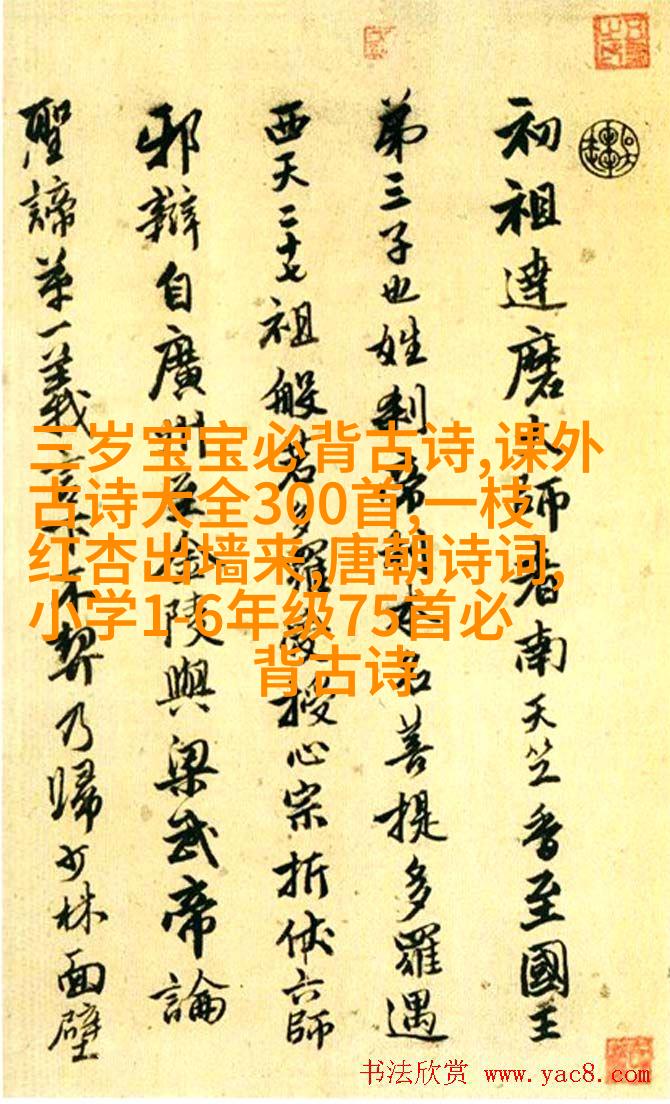 初祖達磨大師者南天竺香至國王
第三子也姓刹帝利本名菩提多羅遇
西天二十七祖般若多羅授心宗折伏六師
邪辯自廣州至金陵與梁武帝論
聖諦第一義言不契乃歸少林面壁
三岁宝宝必背古诗,课外
古诗大全300首,一枝
红杏出墙来,唐朝诗词,
小学1-6年级75首必
背古诗
书法欣赏 www.yac8.com